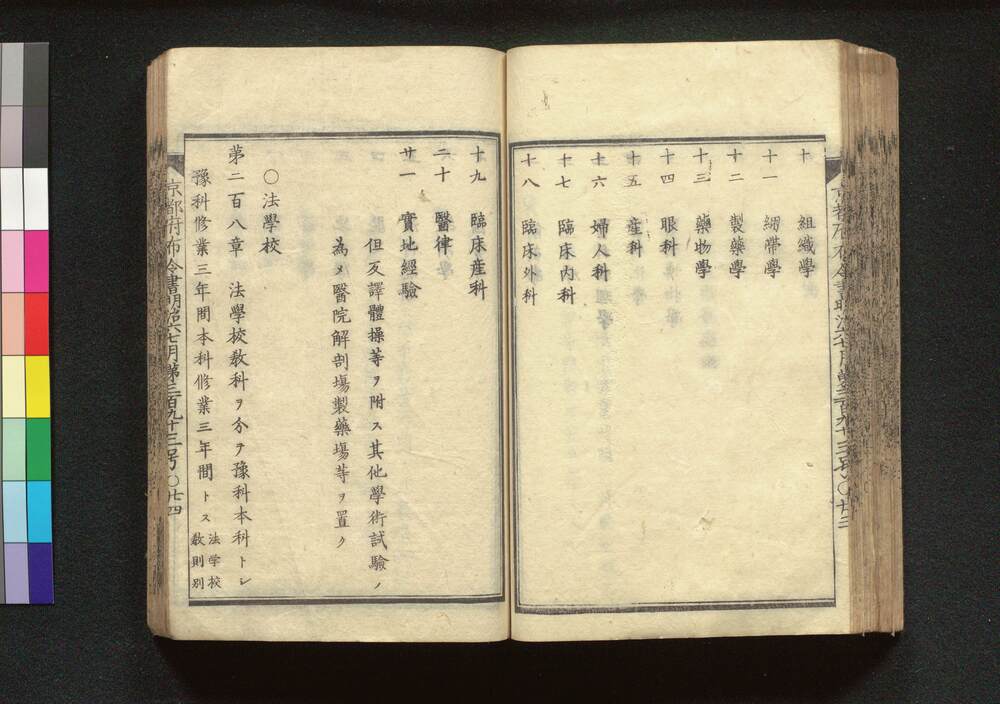 十 組織學
十一 繃帶學
十二 製藥學
十三 藥物學
十四 眼科
十五 産科
十六 婦人科
十七 臨床内科
十八 臨床外科
十九 臨床産科
二十 醫律
廿一 實地經驗
但反譯體操等ヲ附ス其他學術試驗ノ
為メ醫院解剖塲製藥塲等ヲ置ク
○法學校
第二百八章 法學校敎科ヲ分テ豫科本科トシ
豫科修業三年間本科修業三年間トス 法学校
敎則別
京都府布令書明治六七月第三百九十三号 ○廿四